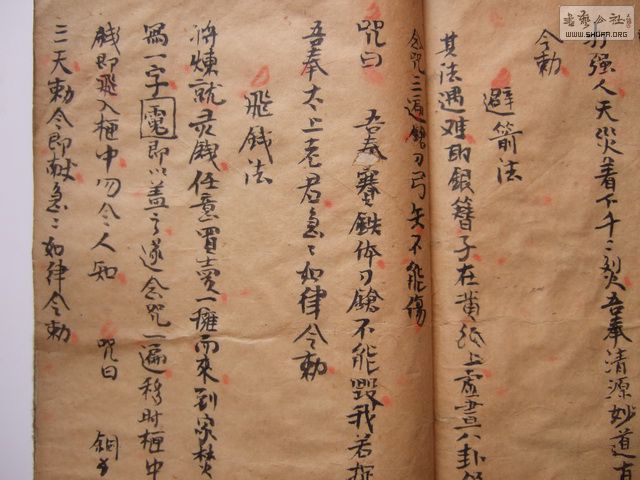 打强人天災着下千二裂吾奉清源妙道真
令勅
避箭法
其法遇难取銀簪子在黄纸上虚畫八卦
念咒三遍鎗刀弓矢不能傷
咒曰 吾奉賽鉄体刀鎗不能毀我若
吾奉太上老君急〻如律令勅
飛銭法
将煉就灵銭任意買卖一擁而來到家焚
寫一字 即以盖之遂念咒一遍移时櫃中
銭即飛入櫃中勿令人知 咒曰 銅
三天勅令即献急〻如律令勅
書藝公社
WWW.SHUFA.ORG